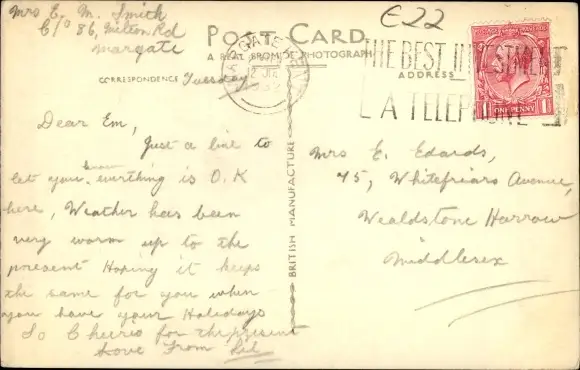 Mrs E. M. Smith
C/o 86, Milton Rd
Margate
E22
POST CARD.
A REAL BROMIDE PHOTOGRAPH
CORRESPONDENCE
Tuesday
ADDRESS
MARGATE KENT
THE BEST INVESTMENT
A TELEPHONE
ONE PENNY
Dear Em,
Just a line to
let you know everthing is O.K
here, Weather has been
very warm up to the
present Hoping it keeps
the same for you when
you have your Holidays
So Cheerio for the present
Love From
BRITISH MANUFACTURE
Mrs E. Edards,
45, Whitefriars Avenue,
Wealdstone Harrow
Middlesex